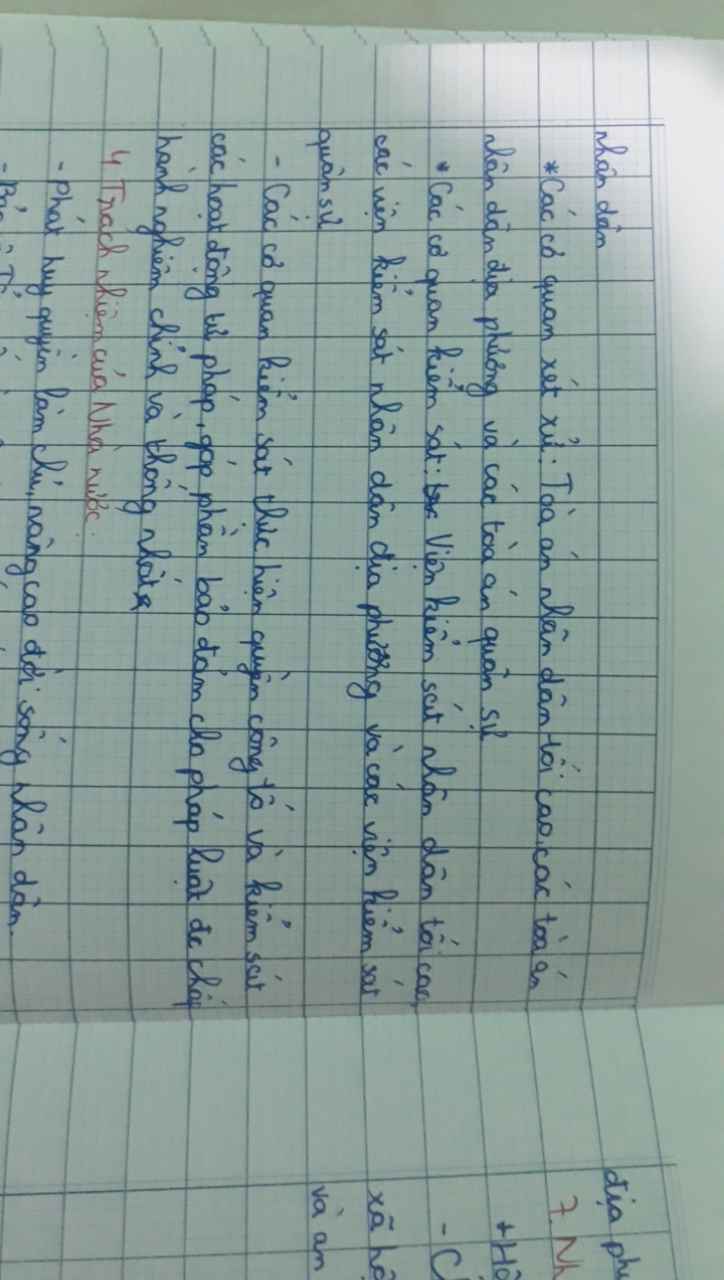 nhân dân
*Các cơ quan xét xử: Toà án nhân dân tối cao, các toà án
nhân dân địa phương và các toà án quân sự
* Các cơ quan kiểm sát: Viện kiểm sát nhân dân tối cao,
các viện kiểm sát nhân dân địa phương và các viện kiểm sát
quân sự
- Các cơ quan kiểm sát thực hiện quyền công tố và kiểm sát
các hoạt động tư pháp, góp phần bảo đảm cho pháp luật đc chấp
hành nghiêm chỉnh và thống nhất
4. Trách nhiệm của Nhà nước.
- Phát huy quyền làm chủ, nâng cao đời sống nhân dân.
- Bảo
địa
7. Nh
xã hộ
và an